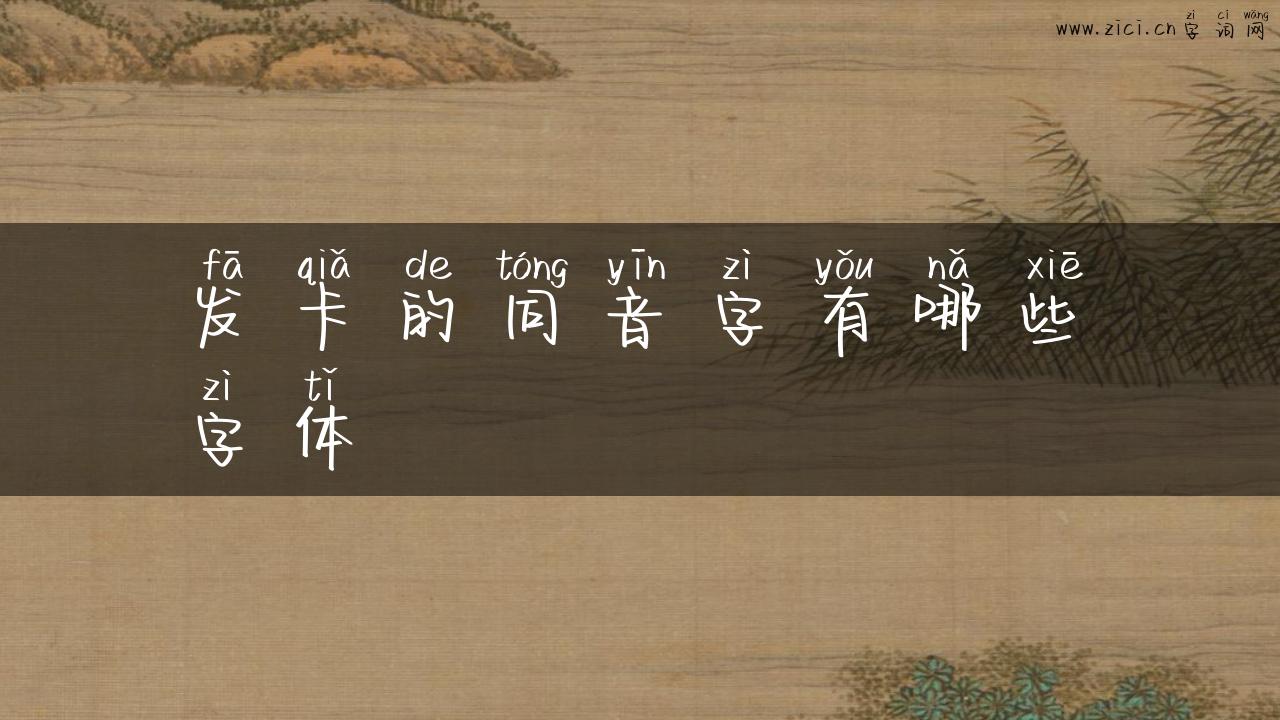 zì cí wǎng
www.zici.cn 字 词 网
fā qiǎ de tóng yīn zì yǒu nǎ xiē
发 卡 的 同 音 字 有 哪 些
zì tǐ
字 体